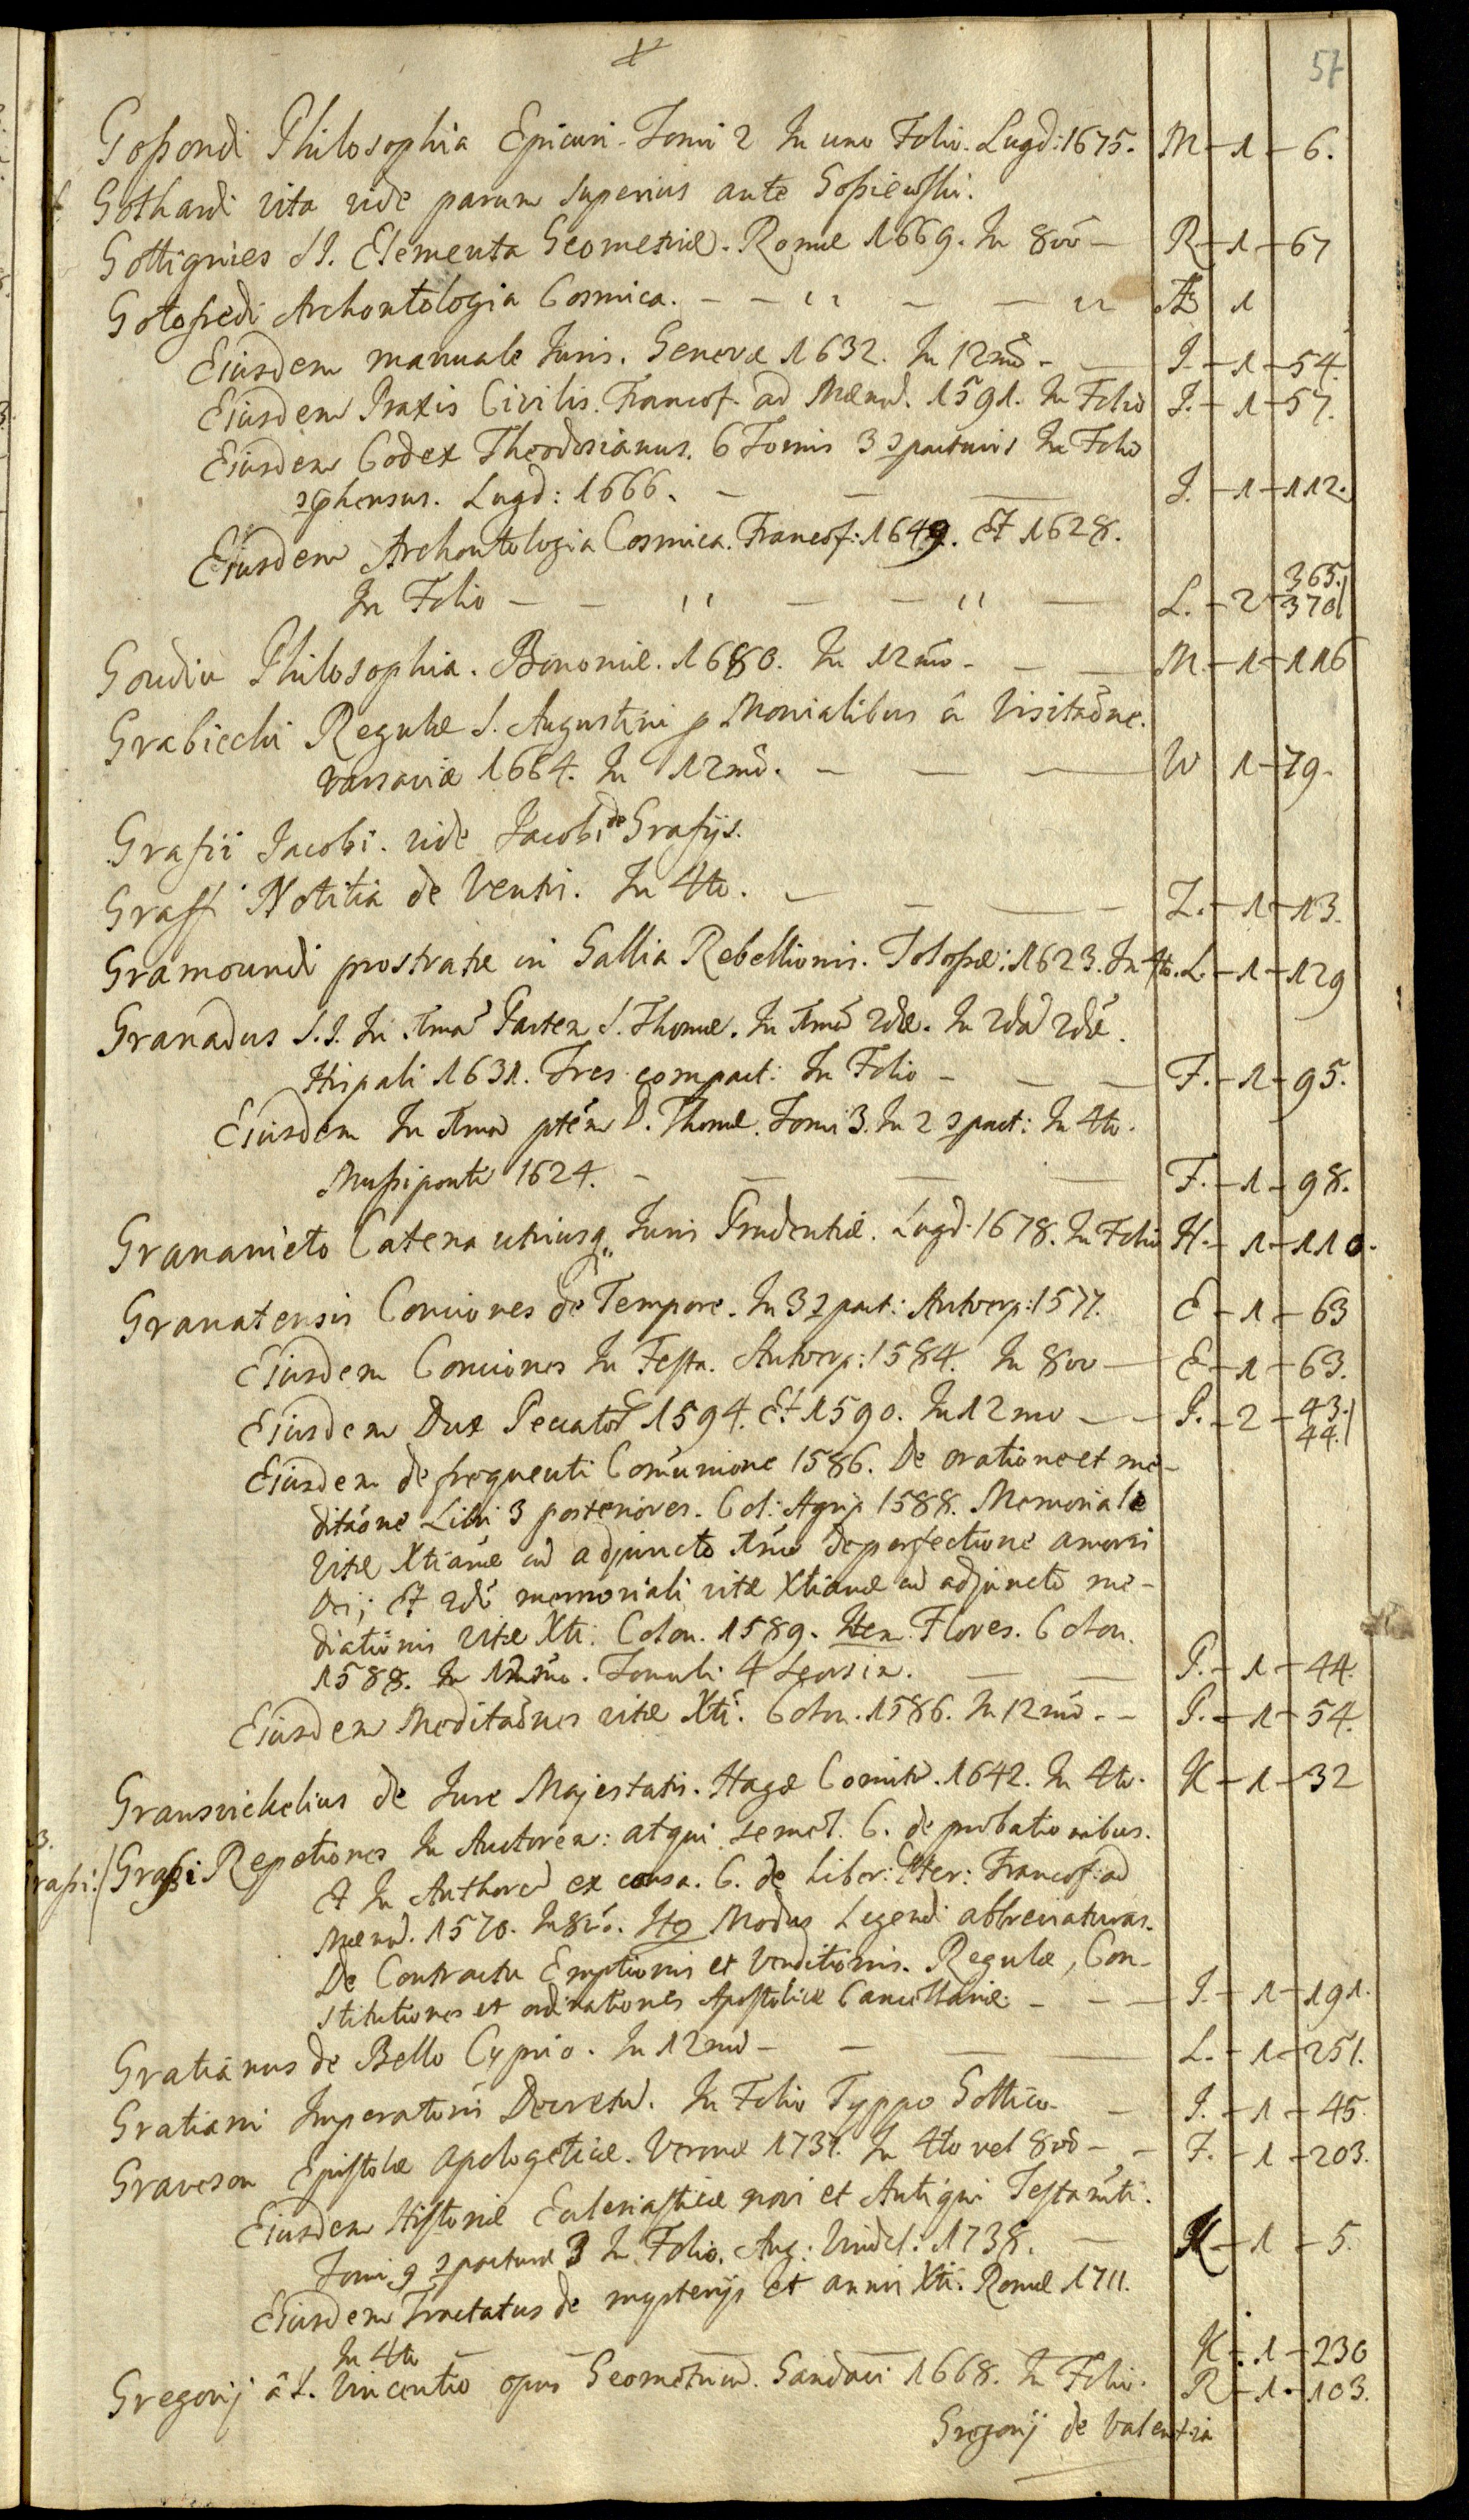 57
Goßondi Philosophia Epicuri. Tomi 2 In uno Folio. Lugd: 1675. M - 1 - 6.
Gothardi vita vide parum superius ante Gosiewski.
Gottignies SI. Elementa Geometriæ. Romæ 1669. In 8vo — R - 1 - 67
Gotofredi Archontologia Cosmica. — — " — — " 1
Eiusdem manuale Iuris. Genevæ 1632. In 12mo — I. - 1 - 54.
Eiusdem Praxis Civilis. Francof. ad Mænum. 1591. In Folio I. - 1 - 57.
Eiusdem Codex Theodosianus. 6 Tomis 3 In Folio
Lugd: 1666. — — — I. - 1 - 112.
Eiusdem Archontologia Cosmica. Francof: 1649. Et 1628.
In Folio — — " — — " — L. - 2 - 365. 370
Goudin Philosophia. Bononiæ. 1680. In 12mo — — — M. - 1 - 116
Grabiecki Regulæ S. Augustini p Monialibus â Visitaõne.
Varsaviæ 1664. In 12mo. — — — W 1 - 79.
Grafii Jacobi. vide Jacobi de Grafijs.
Graff Notitia de Ventri. In 4to. — — — — Z. - 1 - 13.
Gramoundi prostratæ in Gallia Rebellionis. Tolosæ: 1623. In 4to. L - 1 - 129
Granadus S.I. In 1mã Partem S. Thomæ. In 1mã 2dæ. In 2dã 2dæ.
Hispali 1631. Tres compact: In Folio — — — F. - 1 - 95.
Eiusdem In 1mã ptem D. Thomæ. Tomi 3. In 2 In 4to.
Mussiponti 1624. — — — — F. - 1 - 98.
Grananieto Catena utriusq Iuris Prudentiæ. Lugd. 1678. In Folio H. - 1 - 110.
Granatensis Conciones de Tempore. In 3 Antverp: 1577. E - 1 - 63
Eiusdem Conciones In Festa. Antverp: 1584. In 8vo — E - 1 - 63.
Eiusdem Dux Peccatorũ 1594. Et 1590. In 12mo — — P. - 2 - 43. 44.
Eiusdem de frequenti Comunione 1586. De oratione et me-
ditaõne Libri 3 posteriores. Col: Agrip 1588. Memoriale
Vitæ Xtianæ cũ adjuncto 1mo de perfectione amoris
Dei; Et 2do memoriali vitæ Xtianæ cũ adjuncto me-
diationis vitæ Xti. Colon. 1589. Item Flores. Colon.
1588. In 12mo. Tomuli 4 seorsim. — — P. - 1 - 44.
Eiusdem Meditaõnes vitæ Xti. Colon. 1586. In 12mo. — P. - 1 - 54.
Gransvickelius de Iure Majestatis. Hagæ Comitũ. 1642. In 4to. K - 1 - 32
Graßi Repetiones In Auctorem: atqui semel. C. de probationibus.
Et In Authorem ex causa. C. de Liber: Iter: Francof: ad
Mænum. 1570. In 8vo. Modus Legendi abbreviaturas.
De Contractu Emptionis et Venditionis. Regulæ, Con-
stitutiones et ordinationes Apostolicæ Cancellariæ — — — I. - 1 - 191.
Gratianus de Bello Cyprio. In 12mo — — — — L. - 1 - 251.
Gratiani Imperatoris Decretum. In Folio Typpo Gottico — I. - 1 - 45.
Graveson Epistolæ Apologeticæ. Veronæ 1737. In 4to vel 8vo — — F. - 1 - 203.
Eiusdem Historiæ Eclesiasticæ novi et Antiqui Testamti.
Tomi 9 3 In Folio. Aug: Vindel: 1738. — K - 1 - 5.
Eiusdem Tractatus de mysterijs et annis Xti. Romæ 1711.
In 4to — — — — K - 1 - 230
Gregorij â S. Vincentio opus Geometricum. Gandavi 1668. In Folio. R - 1 - 103.
Gregorij de Valentia